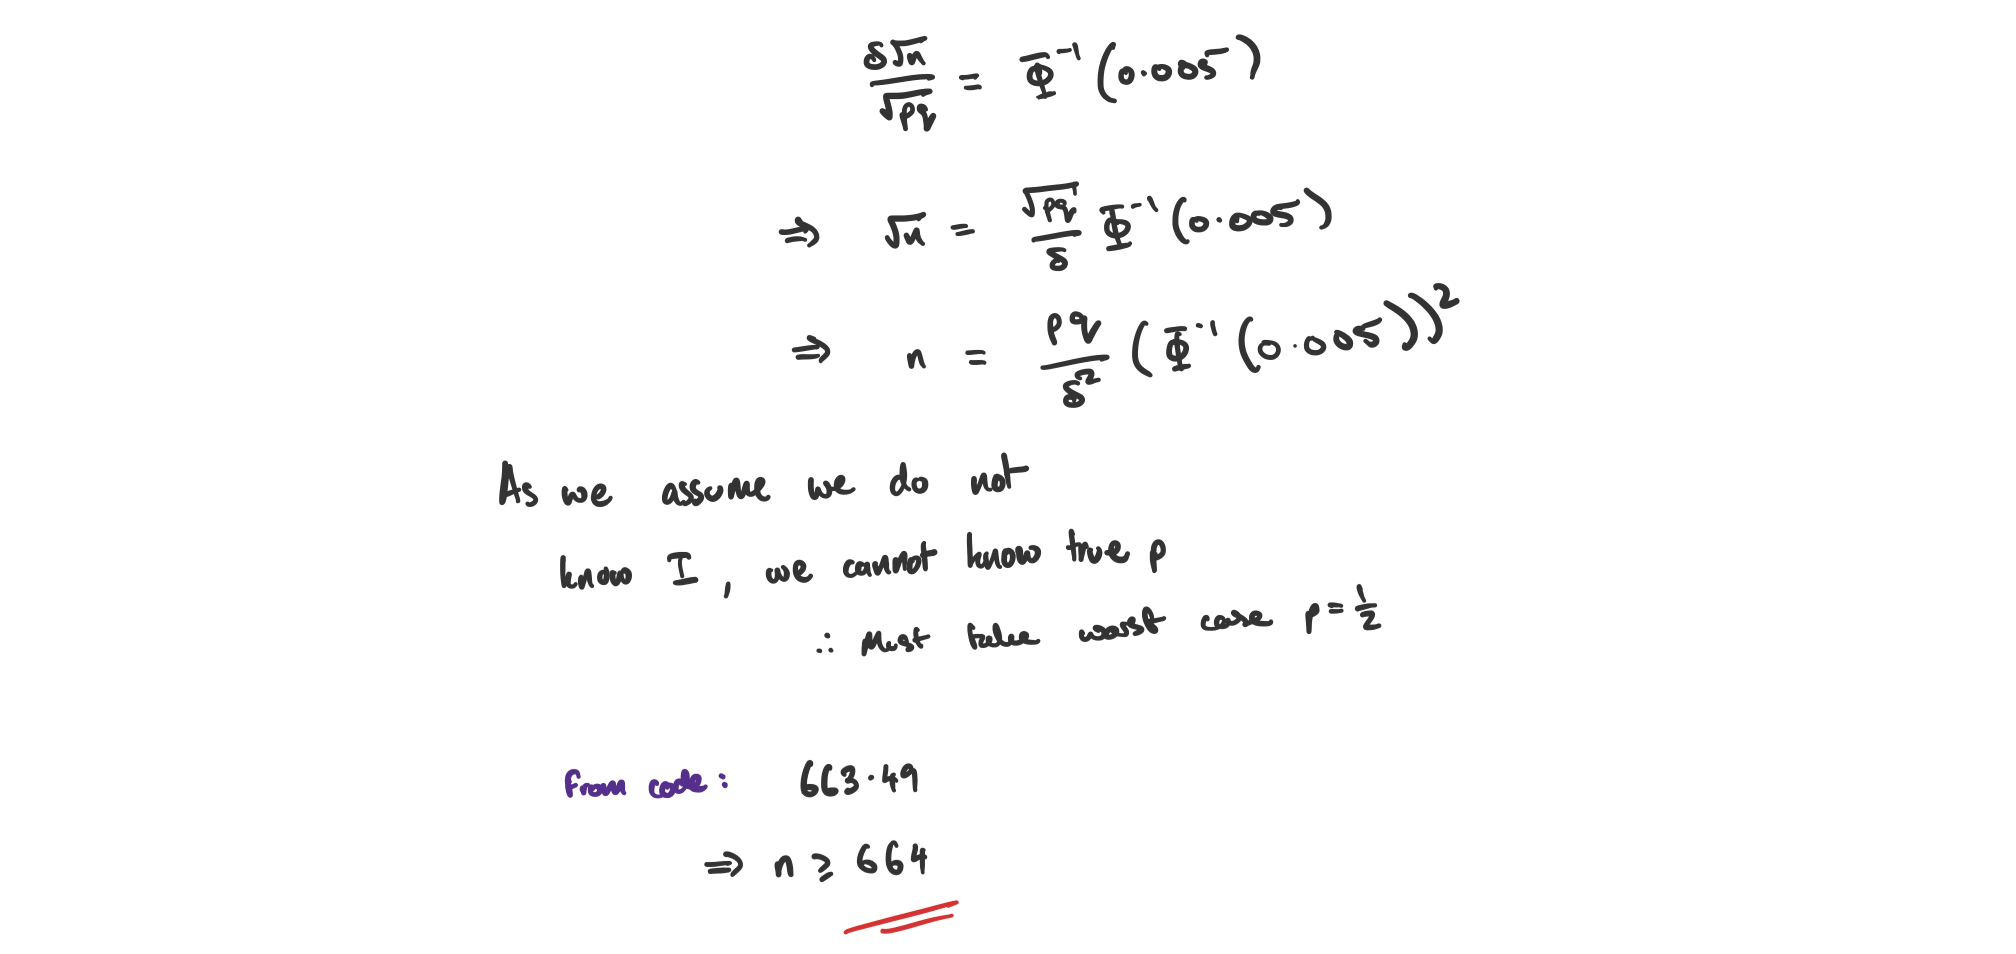 δ√n / √pq = Φ⁻¹(0.005)
⇒ √n = √pq / δ Φ⁻¹(0.005)
⇒ n = pq / δ² (Φ⁻¹(0.005))²
As we assume we do not
know I, we cannot know true p
∴ Must take worst case p = 1/2
From code: 663.49
⇒ n ≥ 664